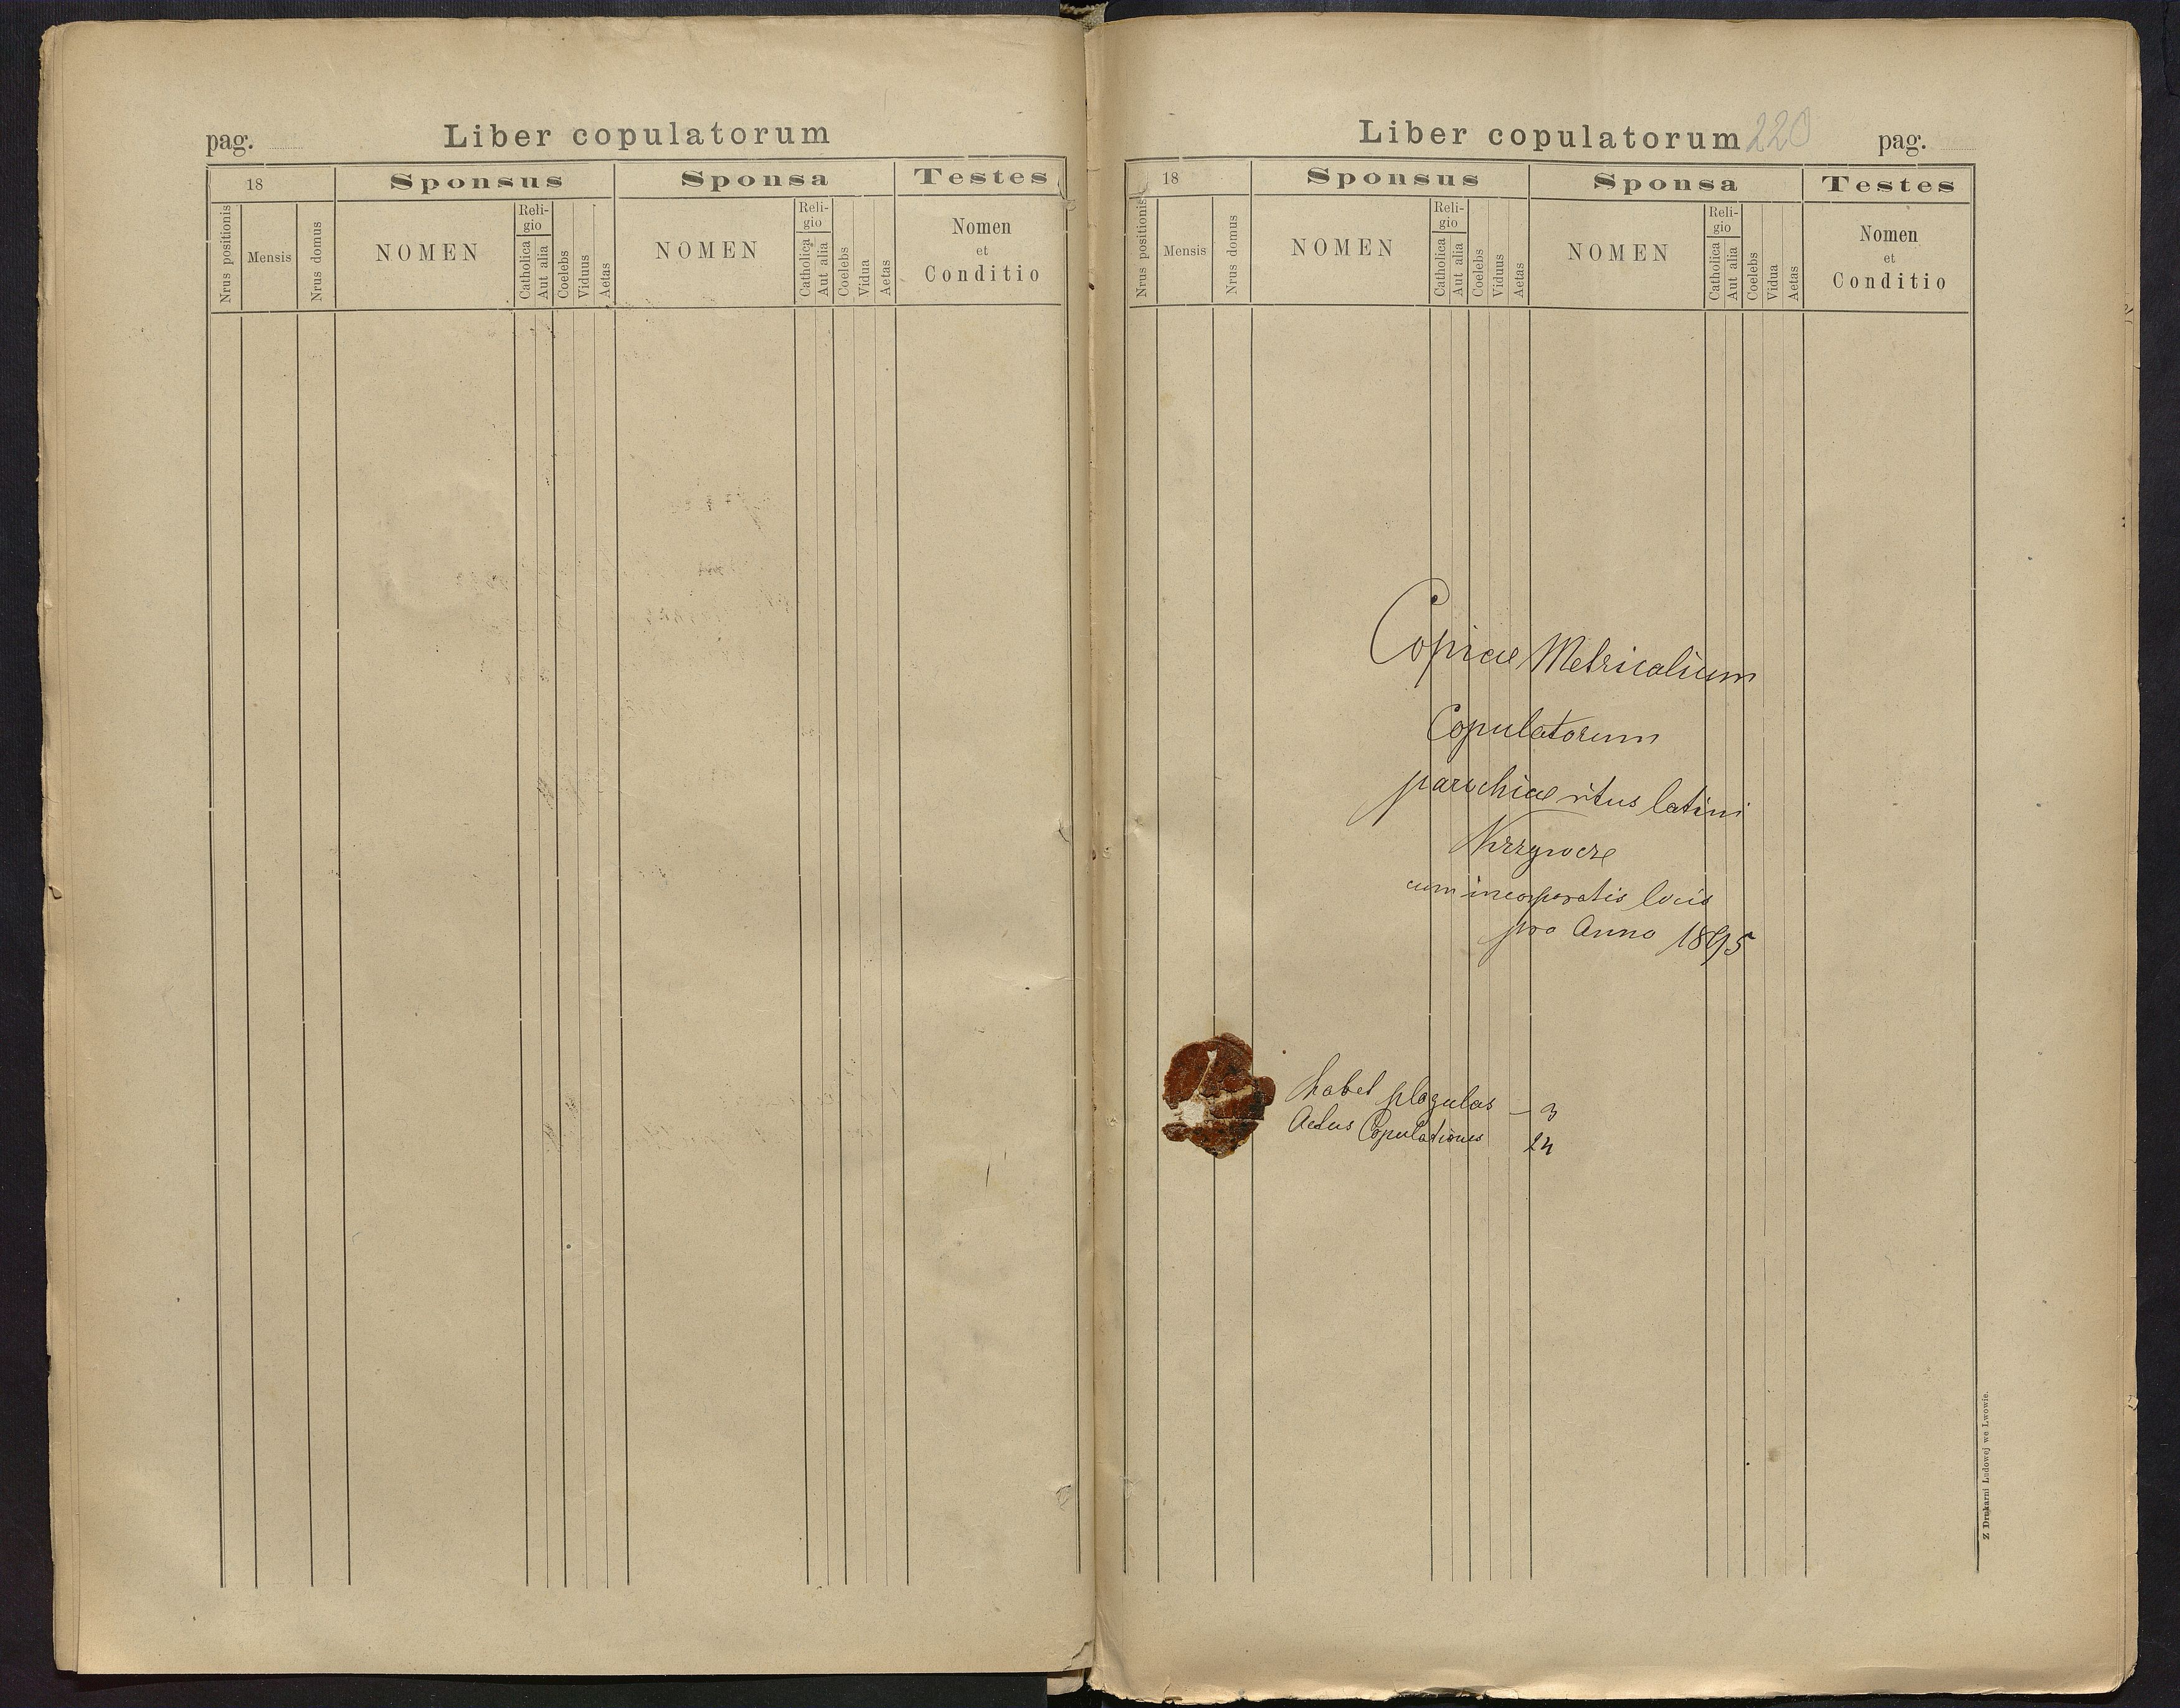 pag.
Liber copulatorum
18
Sponsus
Sponsa
Testes
Nrus positionis
Mensis
Nrus domus
NOMEN
Reli-
gio
Catholica
Aut alia
Coelebs
Viduus
Aetas
NOMEN
Reli-
gio
Catholica
Aut alia
Coelebs
Vidua
Aetas
Nomen
et
Conditio
Liber copulatorum 220
pag.
18
Sponsus
Sponsa
Testes
Nrus positionis
Mensis
Nrus domus
NOMEN
Reli-
gio
Catholica
Aut alia
Coelebs
Viduus
Aetas
NOMEN
Reli-
gio
Catholica
Aut alia
Coelebs
Vidua
Aetas
Nomen
et
Conditio
Copiae Metricalium
Copulatorum
parochiae ritus latini
Krzywcze
cum incorporatis locis
pro Anno 1895
habet plagulas – 3
Actus Copulationis 24
Z Drukarni Ludowej we Lwowie.